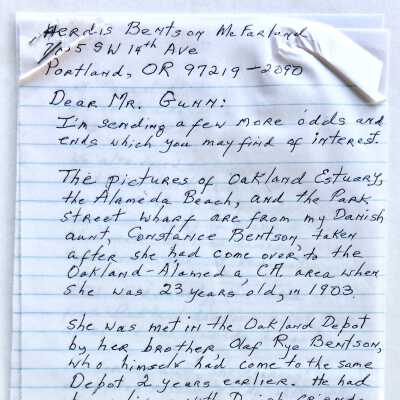 Herdis Bentson McFarland
SW 19th Ave
Portland, OR 97219-2090
Dear Mr. Gunn:
I'm sending a few more odds and
ends which you may find of interest.
The pictures of Oakland Estuary,
the Alameda Beach, and the Park
Street Wharf are from my Danish
aunt, Constance Bentson, taken
after she had come over to the
Oakland-Alameda, CA. area when
she was 23 years old, in 1903.
She was met in the Oakland Depot
by her brother Olaf Rye Bentson,
who himself had come to the same
Depot 2 years earlier. He had